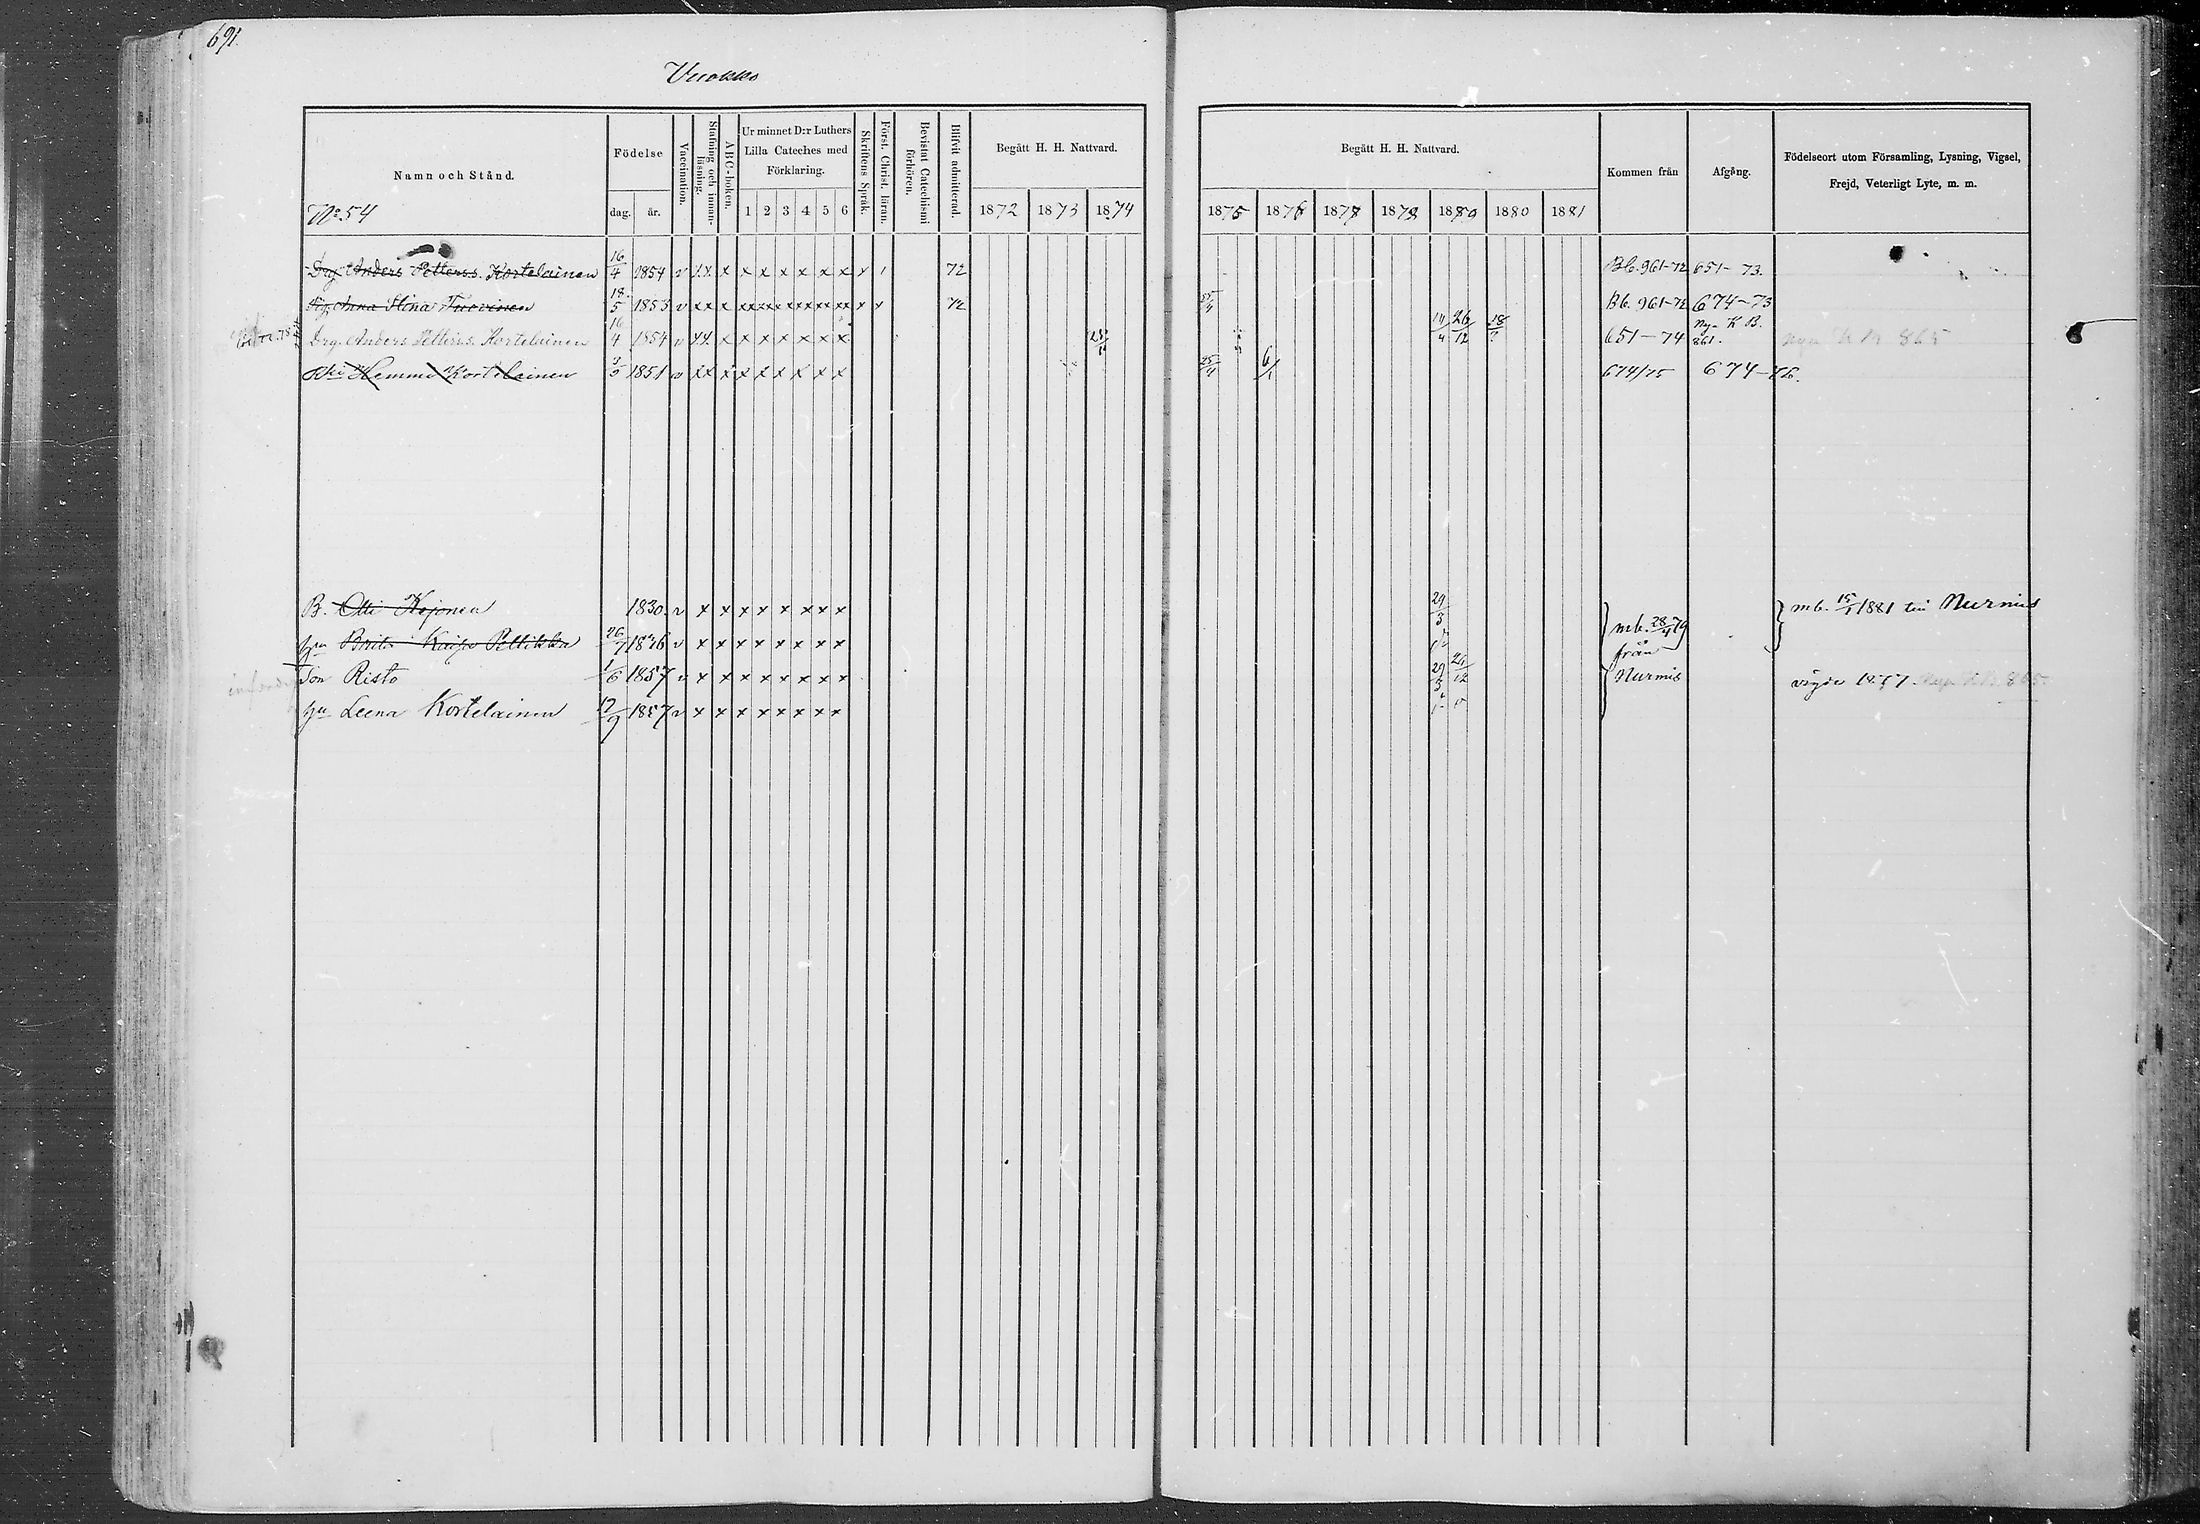 691.
Vuokko
Namn och Stånd.
No 54
Födelse
dag. år.
Vaccination.
Stafning och innanläsning.
ABC-boken.
Ur minnet D:r Luthers
Lilla Cateches med
Förklaring.
1 2 3 4 5 6
Skriftens Språk.
Först. Christ. läran.
Bevistat Catechismi
förhören.
Blifvit admitterad.
Begått H. H. Nattvard.
1872 1873 1874
Begått H. H. Nattvard.
1875 1876 1877 1878 1879 1880 1881
Kommen från
Afgång.
Födelseort utom Församling, Lysning, Vigsel,
Frejd, Veterligt Lyte, m. m.
Drg. Anders Petterss. Kortelainen 16/4 1854 v x x x x x x x x x x 72 Bb. 961-72 651-73.
Pig. Anna Stina Tuovinen 18/5 1853 v x x x xx xx xx xx xx xx x x 72 25/4 Bb. 961-72 674-73
Drg. Anders Petterss. Kortelainen 16/4 1854 v x x x x x x x x x 14/4 26/12 651-74 Nya K B. 861. nya K B 865
Hemmi Kortelainen 1851 v x x x x x x x x x 25/4 6/1 674/75 674-76.
B. Olli Kejonen 1830. v x x x x x x x x 29/3 mb. 28/4 79 mb. 15/1 1881 till Nurmis
hu Brita Kaisa Pellikka 26/7 1826 v x x x x x x x x från
Son Risto 1/6 1857 v x x x x x x x x 29/3 26/12 Nurmis vigde 1877. Nya K B. 865.
hu Leena Kortelainen 17/9 1857 v x x x x x x x x